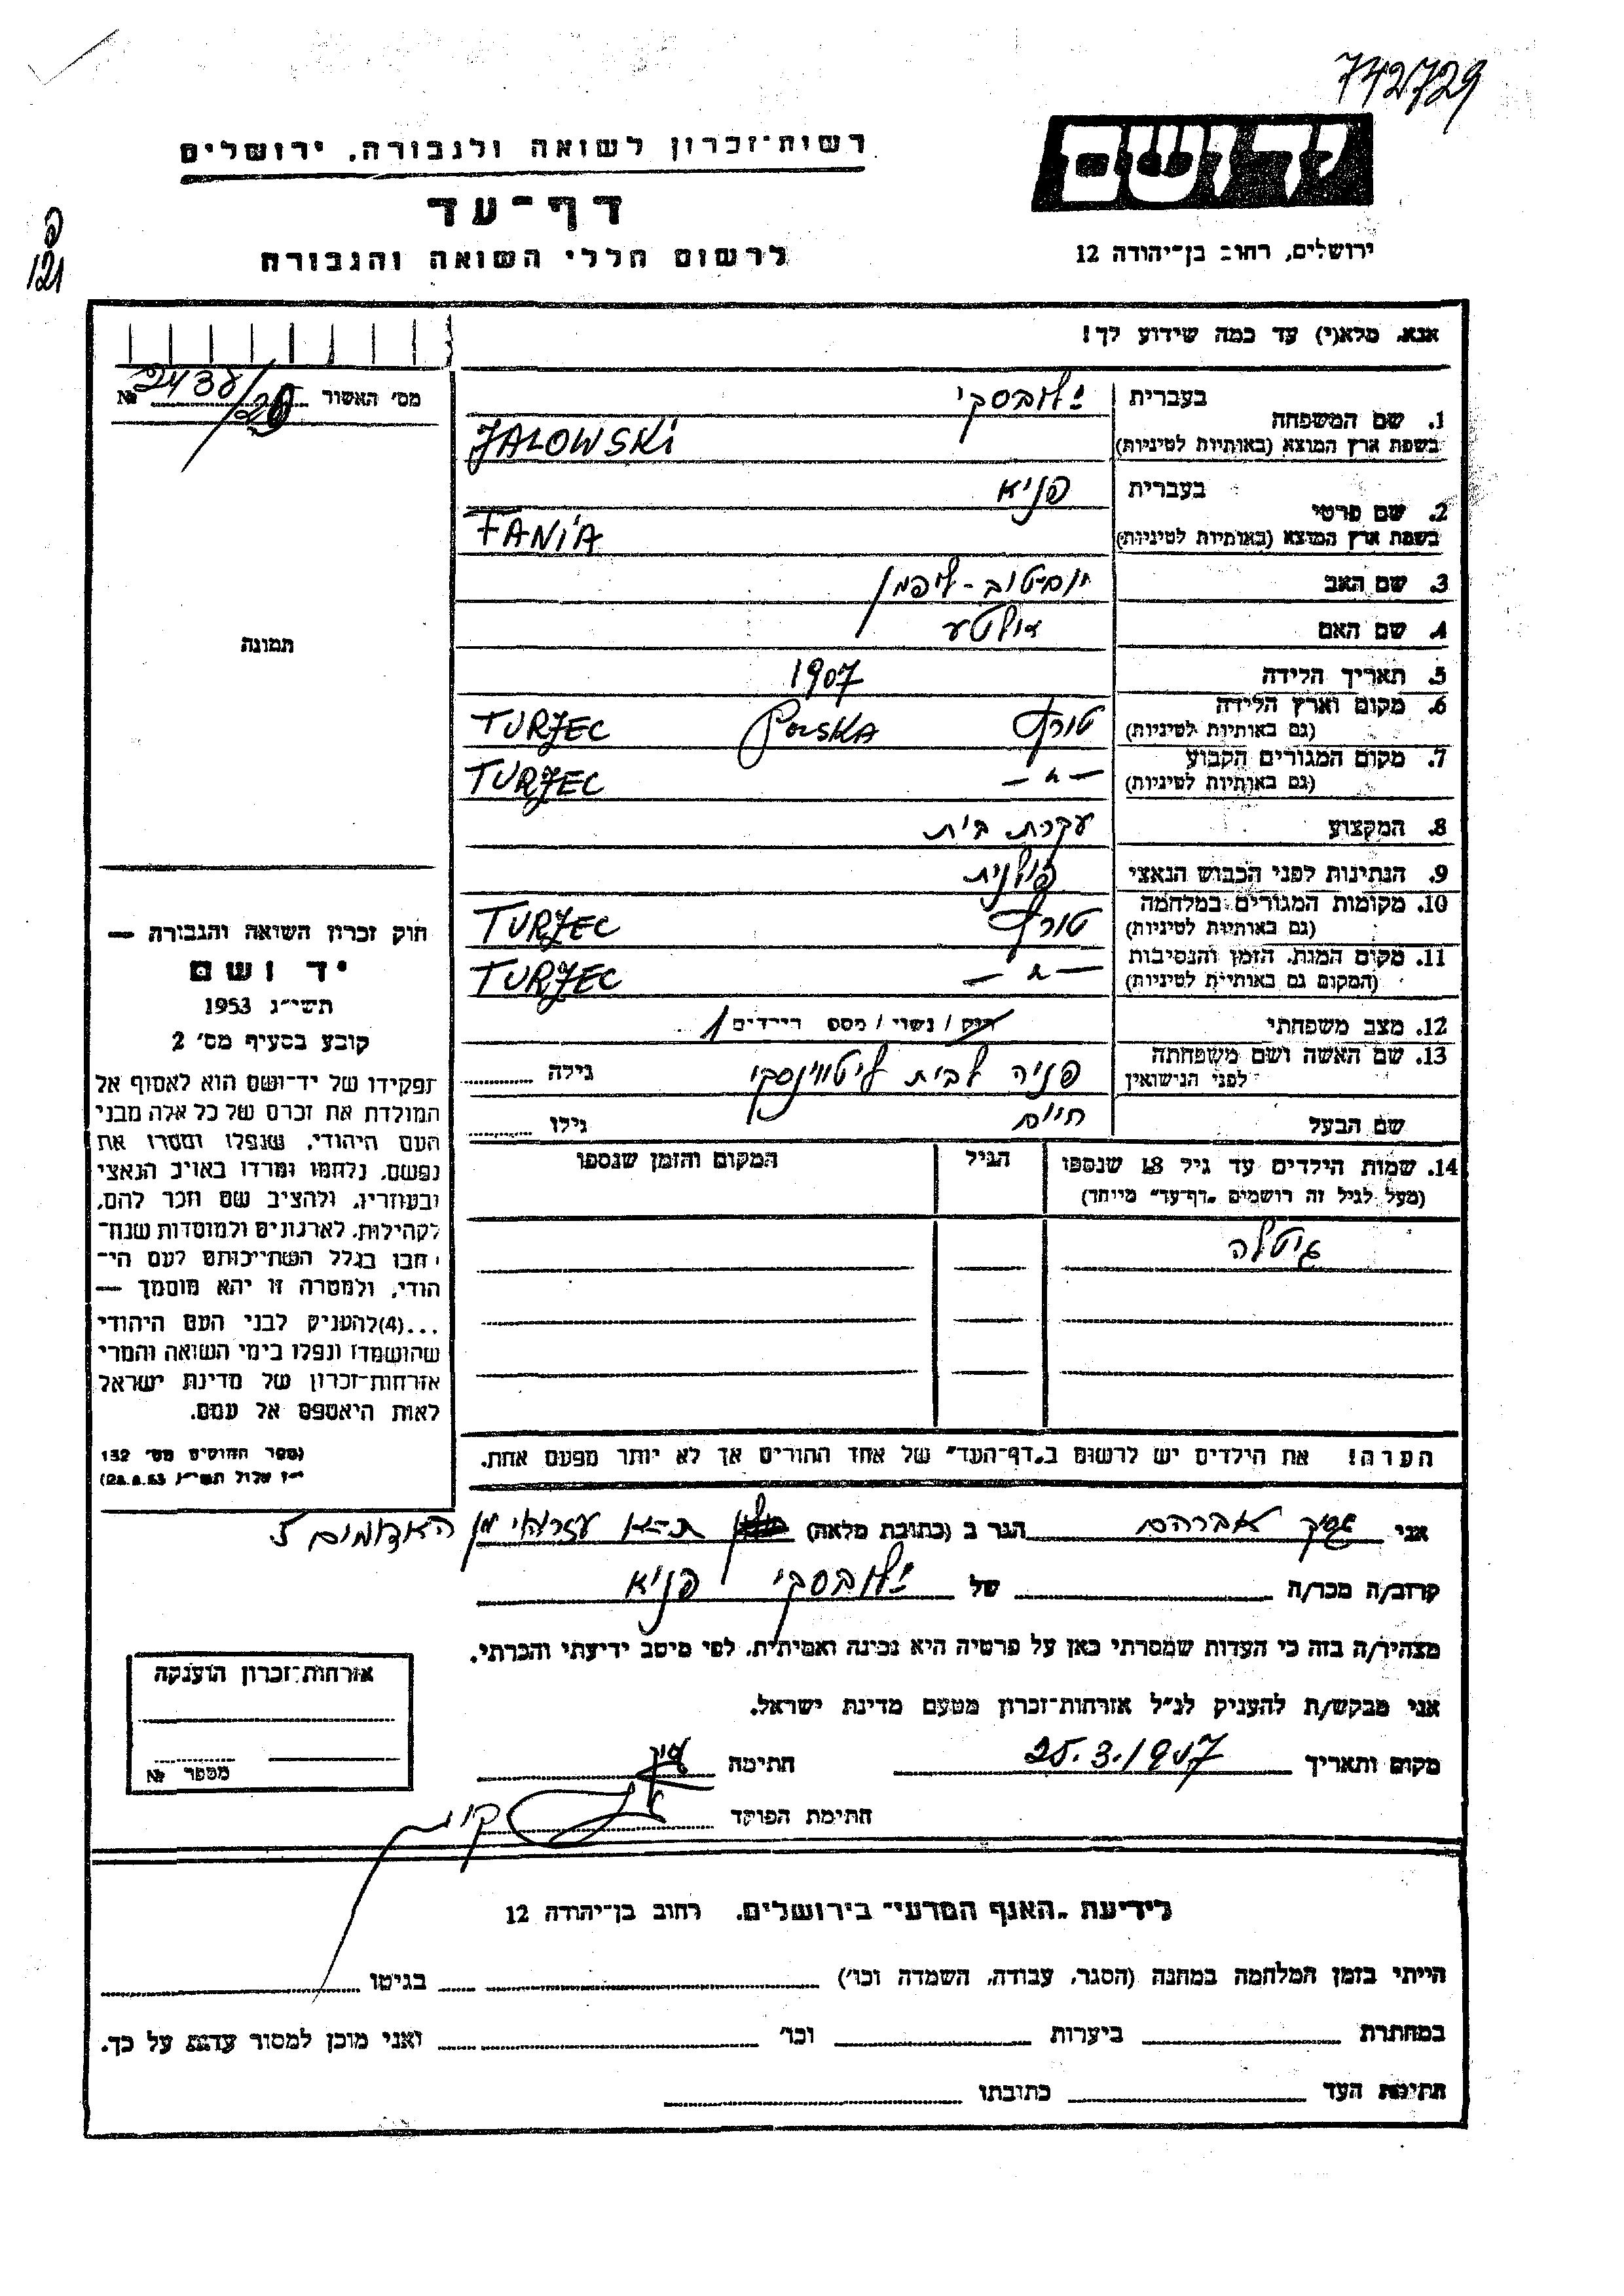 742729
רשות־זכרון לשואה ולגבורה, ירושלים
יד ושם
דף־עד
ירושלים, רחוב בן־יהודה 12
לרשום חללי השואה והגבורה
121
אנא, מלא(י) עד כמה שידוע לך!
מס׳ האשור № 2438/20
1. שם המשפחה
בעברית ילובסקי
בשפת ארץ המוצא (באותיות לטיניות) JALOWSKI
2. שם פרטי
בעברית פניא
בשפת ארץ המוצא (באותיות לטיניות) FANIA
3. שם האב יום־טוב-ליפמן
4. שם האם
5. תאריך הלידה 1907
6. מקום וארץ הלידה (גם באותיות לטיניות) טורץ POLSKA TURZEC
7. מקום המגורים הקבוע (גם באותיות לטיניות) —״ — TURZEC
8. המקצוע עקרת בית
9. הנתינות לפני הכבוש הנאצי פולנית
10. מקומות המגורים במלחמה (גם באותיות לטיניות) טורץ TURZEC
11. מקום המות, הזמן והנסיבות (המקום גם באותיות לטיניות) — ״ — TURZEC
12. מצב משפחתי רווק / נשוי / מספר הילדים 1
13. שם האשה ושם משפחתה לפני הנישואין פניה לבית ליטווינסקי גילה
שם הבעל חיים גילו
14. שמות הילדים עד גיל 18 שנספו הגיל המקום והזמן שנספו
(מעל לגיל זה רושמים „דף־עד״ מיוחד)
גיטלה
הערה! את הילדים יש לרשום ב„דף־העד״ של אחד ההורים אך לא יותר מפעם אחת.
תמונה
חוק זכרון השואה והגבורה —
יד ושם
תשי״ג 1953
קובע בסעיף מס׳ 2
תפקידו של יד־ושם הוא לאסוף אל
המולדת את זכרם של כל אלה מבני
העם היהודי, שנפלו ומסרו את
נפשם, נלחמו ומרדו באויב הנאצי
ובעוזריו, ולהציב שם וזכר להם,
לקהילות, לארגונים ולמוסדות שנח־
רבו בגלל השתייכותם לעם הי־
הודי, ולמטרה זו יהא מוסמך —
...(4) להעניק לבני העם היהודי
שהושמדו ונפלו בימי השואה והמרי
אזרחות־זכרון של מדינת ישראל
לאות היאספם אל עמם.
(ספר החוקים מס׳ 132
י״ז אלול תשי״ג 28.8.53)
אני אברהם הגר ב (כתובת מלאה) ת-א עזריאי מן האדומים 5
קרוב/ה מכר/ה של ילובסקי פניא
מצהיר/ה בזה כי העדות שמסרתי כאן על פרטיה היא נכונה ואמיתית, לפי מיטב ידיעתי והכרתי.
אני מבקש/ת להעניק לנ״ל אזרחות־זכרון מטעם מדינת ישראל.
מקום ותאריך 25.3.1957 חתימה
חתימת הפוקד
אזרחות־זכרון הוענקה
מספר №
לידיעת „האגף המדעי״ בירושלים, רחוב בן־יהודה 12
הייתי בזמן המלחמה במחנה (הסגר, עבודה, השמדה וכו׳) בגיטו
במחתרת ביערות וכו׳ ואני מוכן למסור עדות על כך.
חתימת העד כתובתו